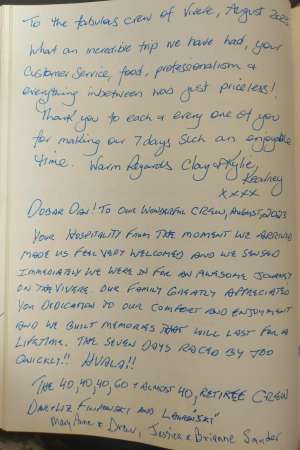 To the fabulous crew of Vivere, August 202
What an incredible trip we have had, your
customer service, food, professionalism &
everything inbetween was just priceless!
Thank you to each & every one of you
for making our 7 days such an enjoyable
time. Warm Regards Clay & Kylie
Kearney
xxxx
DOBAR DAN! TO OUR WONDERFUL CREW, AUGUST 2023
YOUR HOSPITALITY FROM THE MOMENT WE ARRIVED
MADE US FEEL VERY WELCOMED AND WE SENSED
IMMEDIATELY WE WERE IN FOR AN AWESOME JOURNEY
ON THE VIVERE. OUR FAMILY GREATLY APPRECIATED
YOU DEDICATION TO OUR COMFORT AND ENJOYMENT
AND WE BUILT MEMORIES THAT WILL LAST FOR A
LIFETIME. THE SEVEN DAYS RACED BY TOO
QUICKLY!! HVALA!!
THE 40, 40, 40, 60 & ALMOST 40, RETIREE CREW
DAN & LIZ AND
Mary Anne & Drew, Jessica & Brianne Sandor